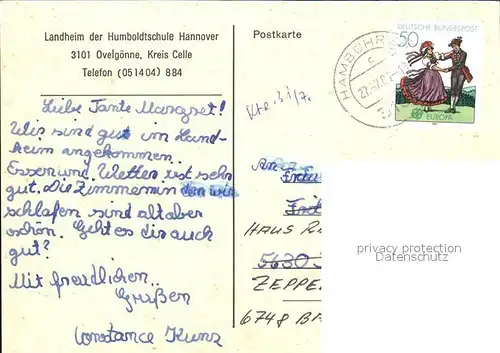 Landheim der Humboldtschule Hannover
3101 Ovelgönne, Kreis Celle
Telefon (051404) 884
Postkarte
DEUTSCHE BUNDESPOST
50
EUROPA
HAMBÜHREN
Liebe Tante Margret!
Wir sind gut im Land-
heim angekommen.
Essen und Wetter ist sehr
gut. Die Zimmer in den wir
schlafen sind alt aber
schön. Geht es dir auch
gut?
Mit freundlichen
Grüßen
Constance Kunz
An
HAUS
5630
ZEPPE
6748 B
privacy protection
Datenschutz